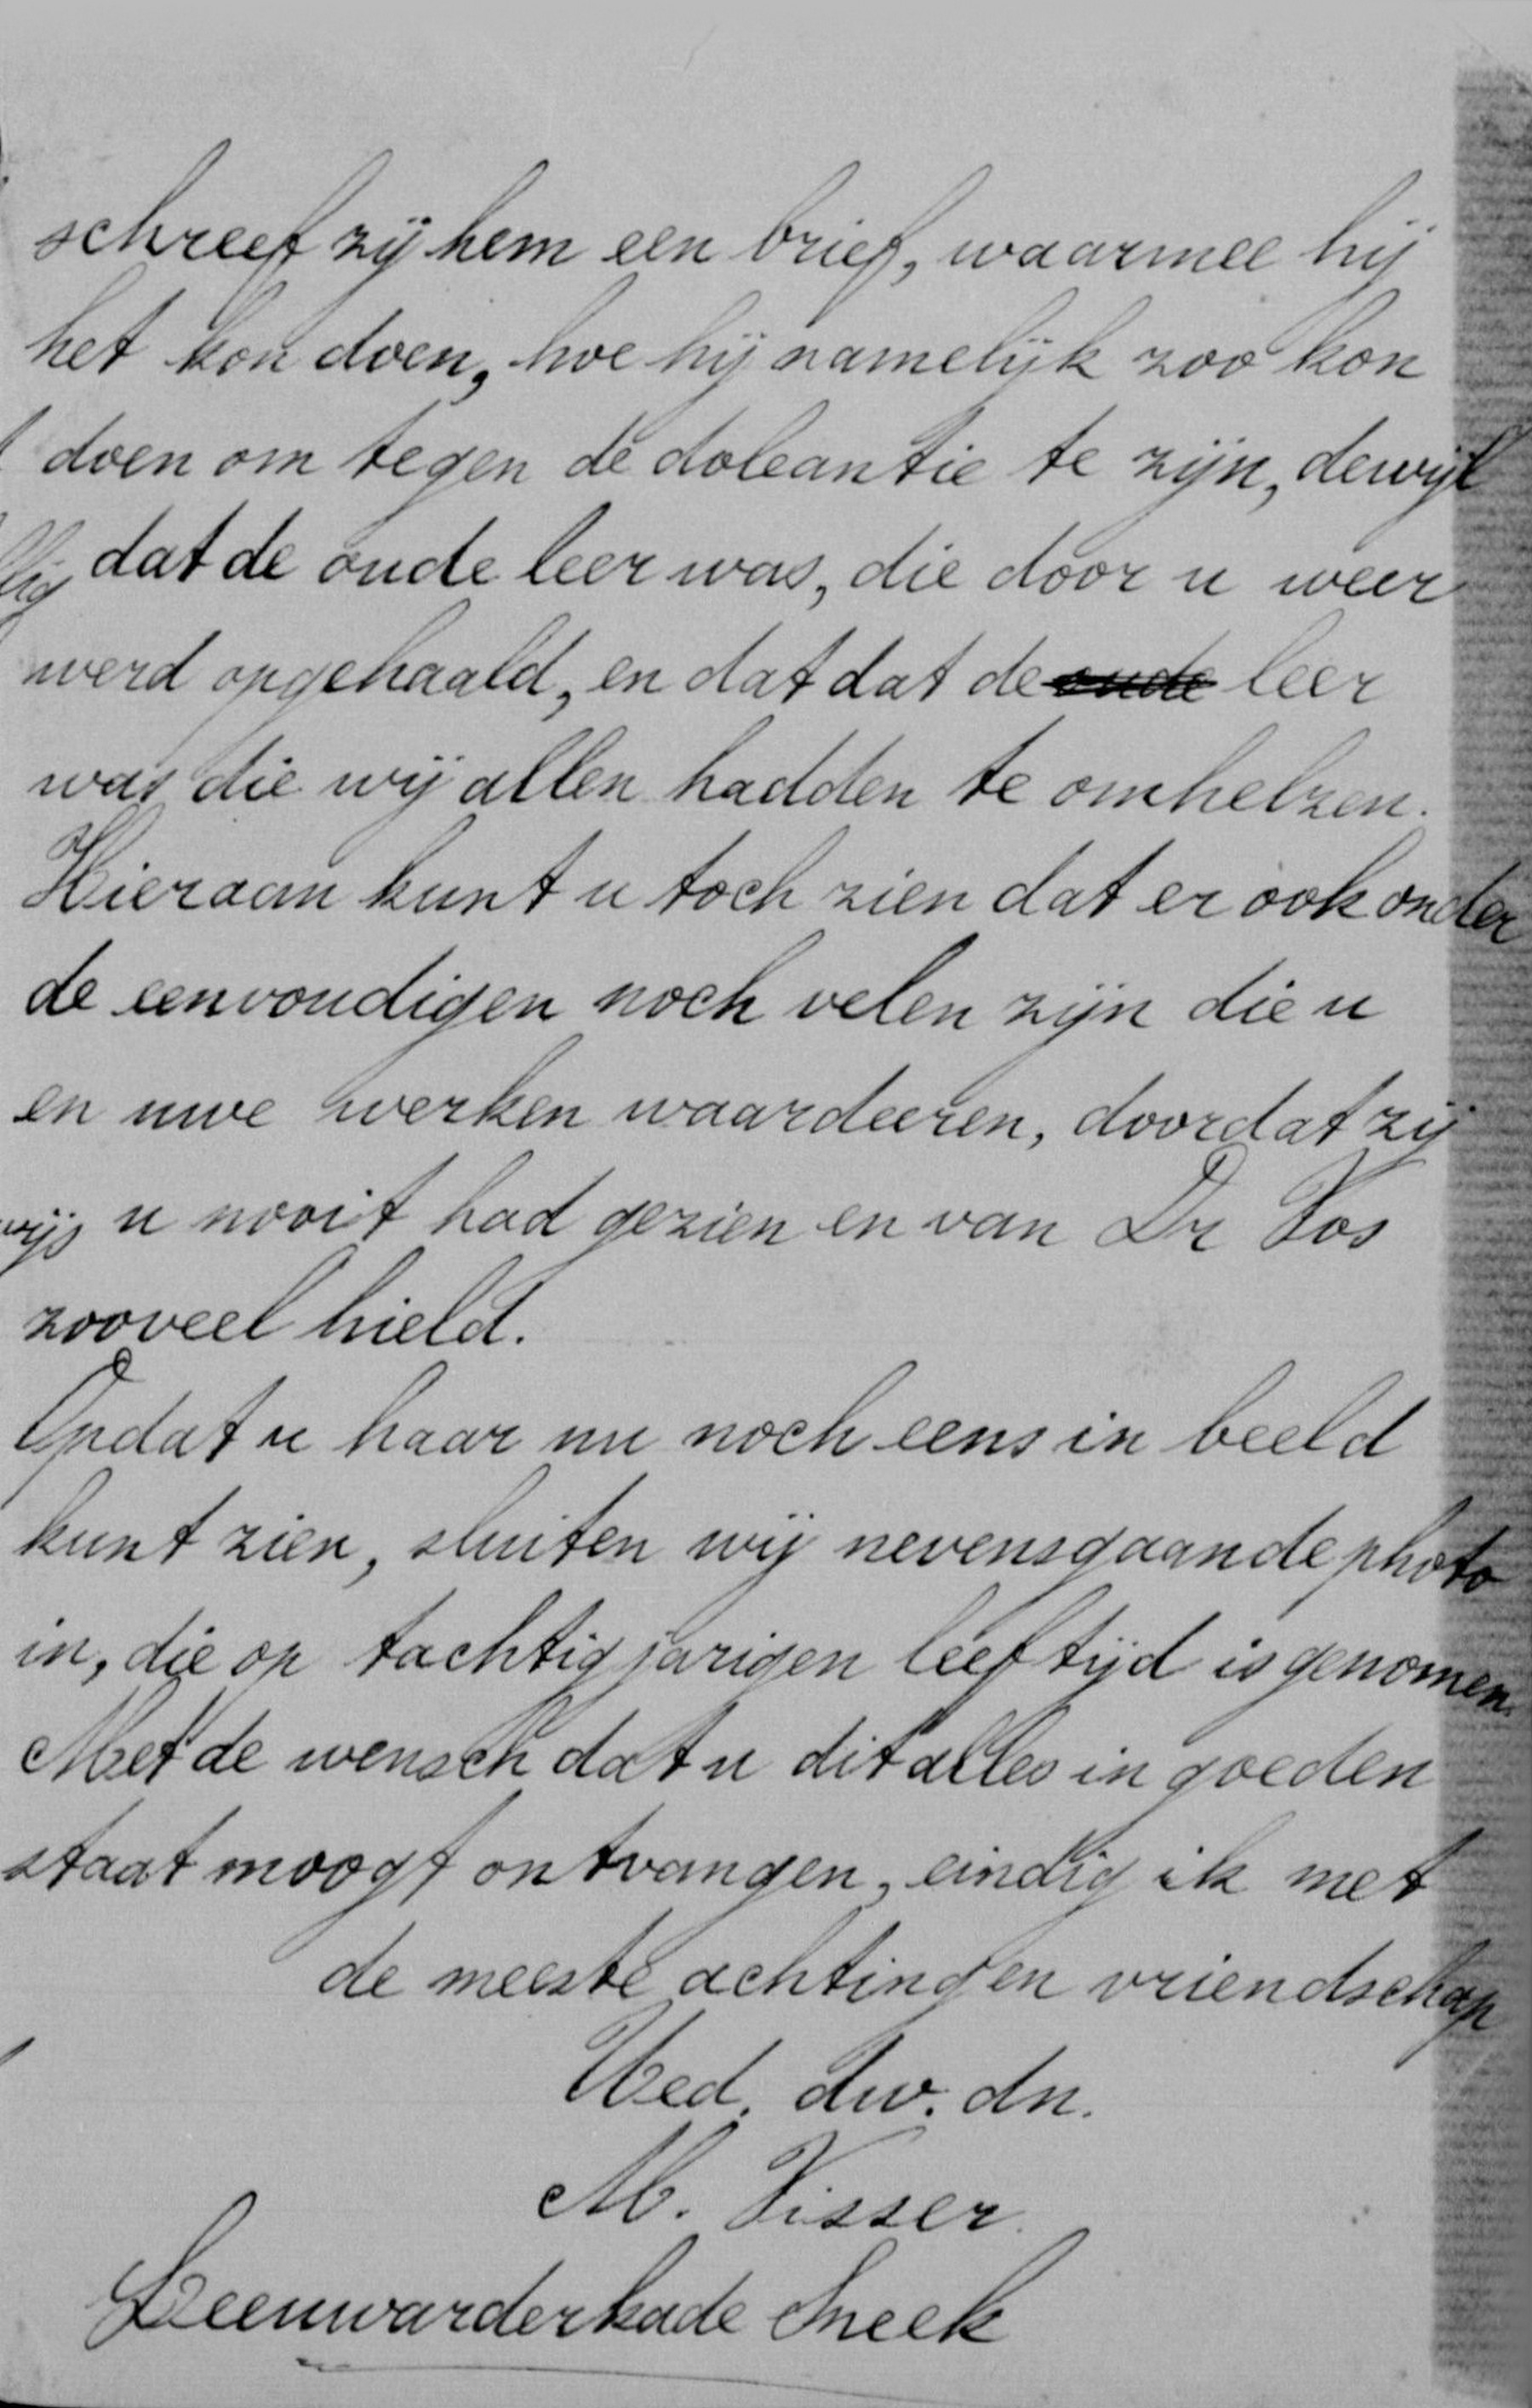 schreef zij hem een brief, waarmee hij
het kon doen, hoe hij namelijk zoo kon
doen om tegen de doleantie te zijn, dewijl
dat de oude leer was, die door u weer
werd opgehaald, en dat dat de oude leer
was die wij allen hadden te omhelzen.
Hieraan kunt u toch zien dat er ook onder
de eenvoudigen noch velen zijn die u
en uwe werken waardeeren, doordat zij
u nooit had gezien en van Dr Vos
zooveel hield.
Opdat u haar nu noch eens in beeld
kunt zien, sluiten wij nevensgaande photo
in, die op tachtigjarigen leeftijd is genomen.
Met de wensch dat u dit alles in goeden
staat moogt ontvangen, eindig ik met
de meeste achting en vriendschap
Ued. dw. dn.
M. Visser.
Leeuwarderkade Sneek